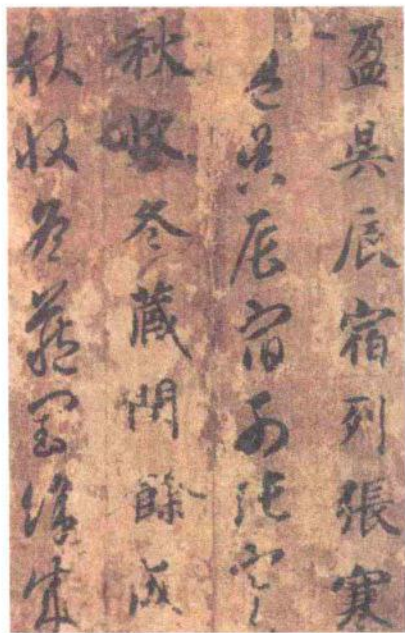 盈昃辰宿列張寒
盈昃辰宿列張寒
秋收冬藏閏餘成
秋收冬藏閏餘成